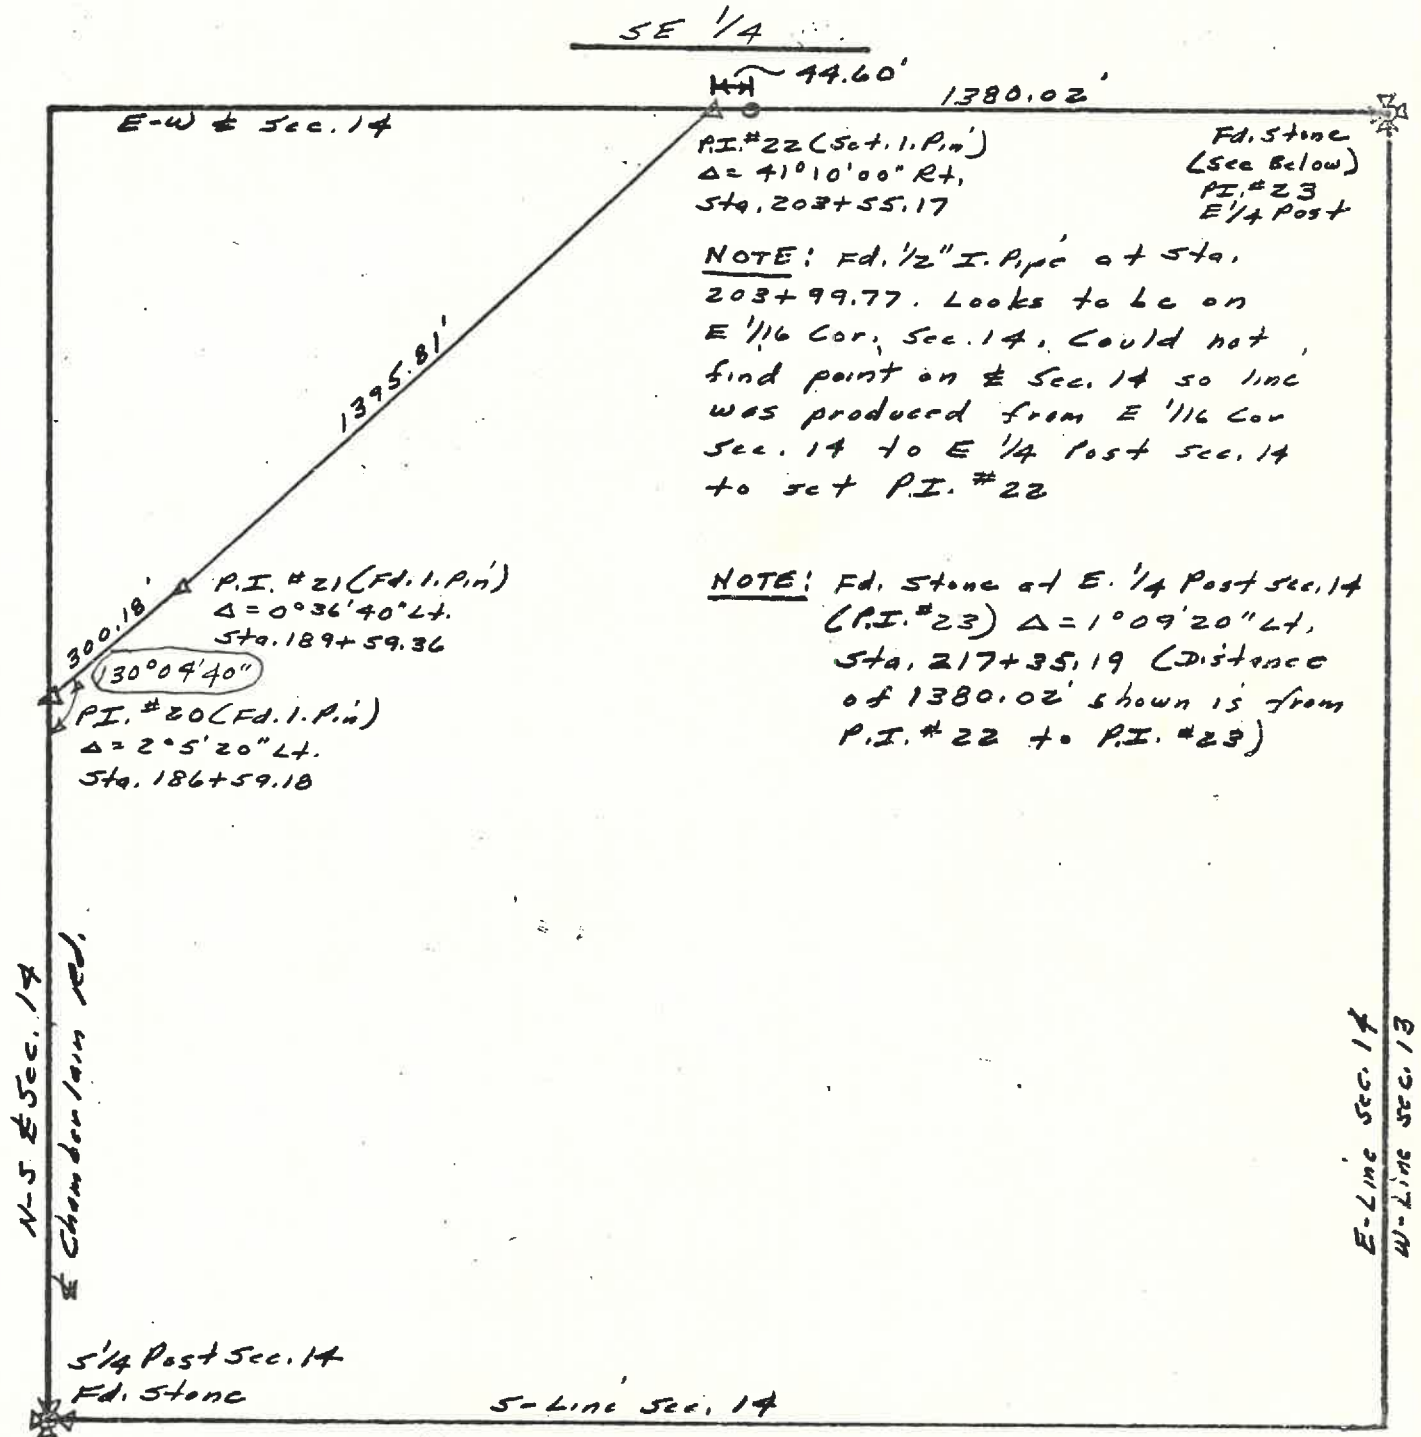 SE 1/4
44.60'
1380.02'
E-W ℄ Sec. 14
P.I. #22 (Set. I. Pin)
Δ = 41°10'00" Rt.
Sta. 203+55.17
Fd. Stone
(See Below)
P.I. #23
E 1/4 Post
NOTE: Fd. 1/2" I. Pipe at Sta.
203+99.77. Looks to be on
E 1/16 Cor. Sec. 14. Could not
find point on ℄ Sec. 14 so line
was produced from E 1/16 Cor
Sec. 14 to E 1/4 Post Sec. 14
to set P.I. #22
1395.81'
P.I. #21 (Fd. I. Pin)
Δ = 0°36'40" Lt.
Sta. 189+59.36
300.18'
130°04'40"
P.I. #20 (Fd. I. Pin)
Δ = 2°5'20" Lt.
Sta. 186+59.18
NOTE: Fd. Stone at E. 1/4 Post Sec. 14
(P.I. #23) Δ = 1°09'20" Lt.
Sta. 217+35.19 (Distance
of 1380.02' shown is from
P.I. #22 to P.I. #23)
N-S ℄ Sec. 14
℄ Chamberlain Rd.
E-Line Sec. 14
W-Line Sec. 13
S 1/4 Post Sec. 14
Fd. Stone
S-Line Sec. 14